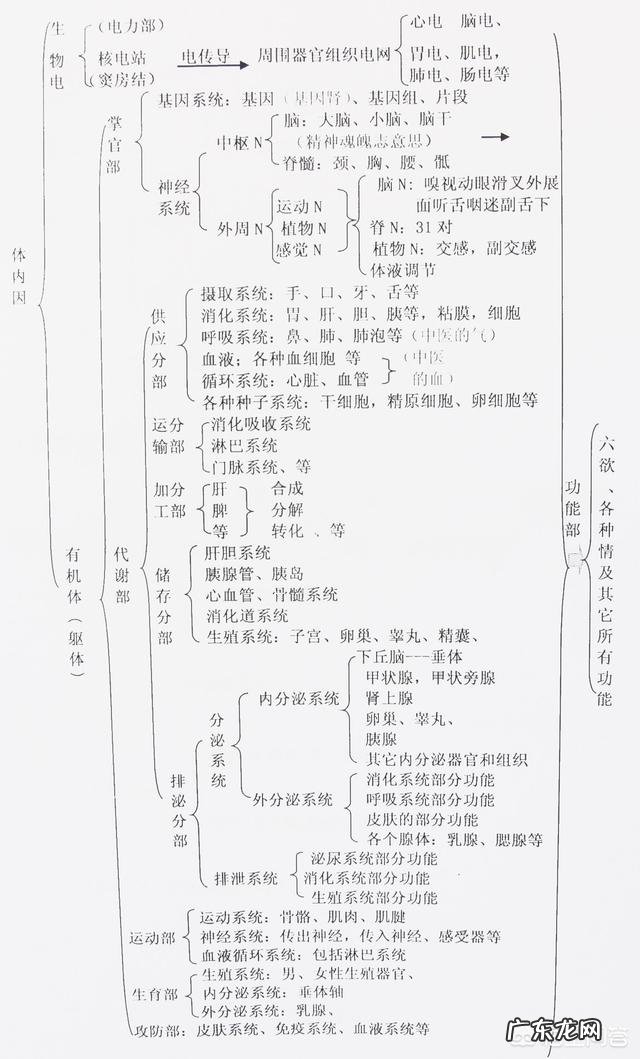 生物电
(电力部)
核电站
(窦房结)
电传导
周围器官组织电网
心电 脑电、
胃电、肌电，
肺电、肠电等
体内因
有机体(躯体)
掌官部
基因系统：基因(基因肾)、基因组、片段
神经系统
中枢N
脑：大脑、小脑、脑干
(精神魂魄志意思)
脊髓：颈、胸、腰、骶
外周N
运动N
植物N
感觉N
脑N：嗅视动眼滑叉外展
面听舌咽迷副舌下
脊N：31对
植物N：交感，副交感
体液调节
代谢部
供应分部
摄取系统：手、口、牙、舌等
消化系统：胃、肝、胆、胰等，粘膜，细胞
呼吸系统：鼻、肺、肺泡等(中医的气)
血液；各种血细胞 等
循环系统：心脏、血管
(中医的血)
各种种子系统：干细胞，精原细胞、卵细胞等
运输分部
消化吸收系统
淋巴系统
门脉系统、等
加工分部
肝
脾
等
合成
分解
转化 、等
储存分部
肝胆系统
胰腺管、胰岛
心血管、骨髓系统
消化道系统
生殖系统：子宫、卵巢、睾丸、精囊、
排泌分部
分泌系统
内分泌系统
下丘脑---垂体
甲状腺，甲状旁腺
肾上腺
卵巢、睾丸、
胰腺
其它内分泌器官和组织
外分泌系统
消化系统部分功能
呼吸系统部分功能
皮肤的部分功能
各个腺体：乳腺、腮腺等
排泄系统
泌尿系统部分功能
消化系统部分功能
生殖系统部分功能
运动部
运动系统：骨骼、肌肉、肌腱
神经系统：传出神经，传入神经、感受器等
血液循环系统：包括淋巴系统
生育部
生殖系统：男、女性生殖器官、
内分泌系统：垂体轴
外分泌系统：乳腺、
攻防部：皮肤系统、免疫系统、血液系统等
功能部
六欲、各种情及其它所有功能
广东龙网